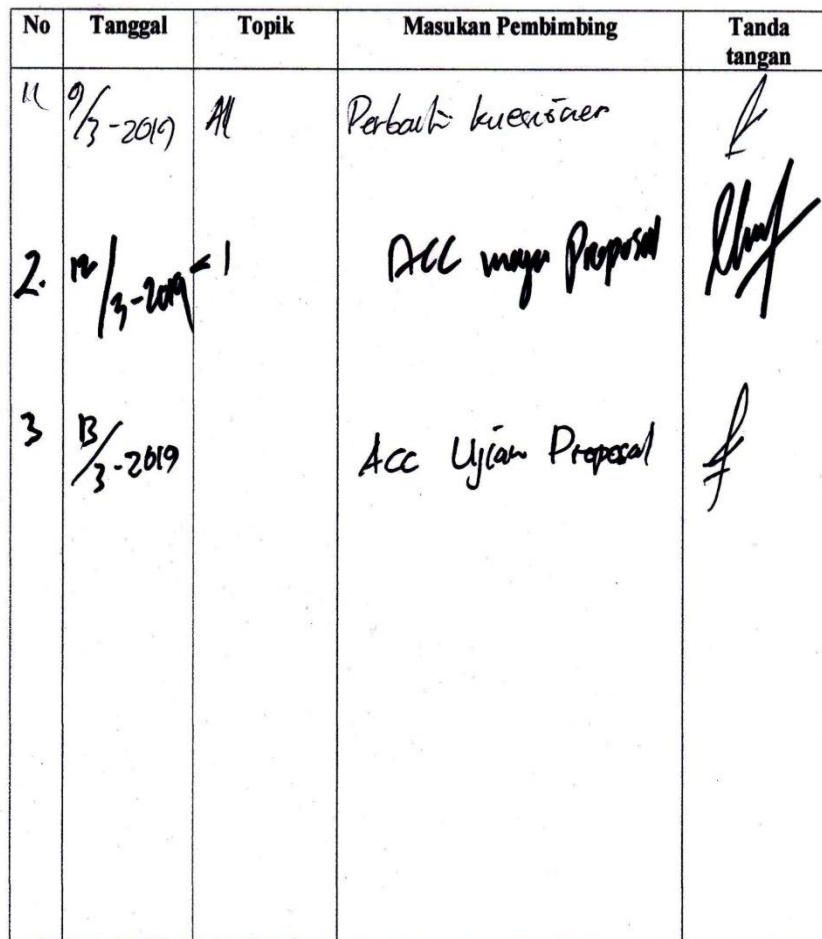 No Tanggal Topik Masukan Pembimbing Tanda tangan
9/3-2019 All Perbaiki kuesioner
2. 12/3-2019 ACC maju Proposal
3 13/3-2019 Acc Ujian Proposal